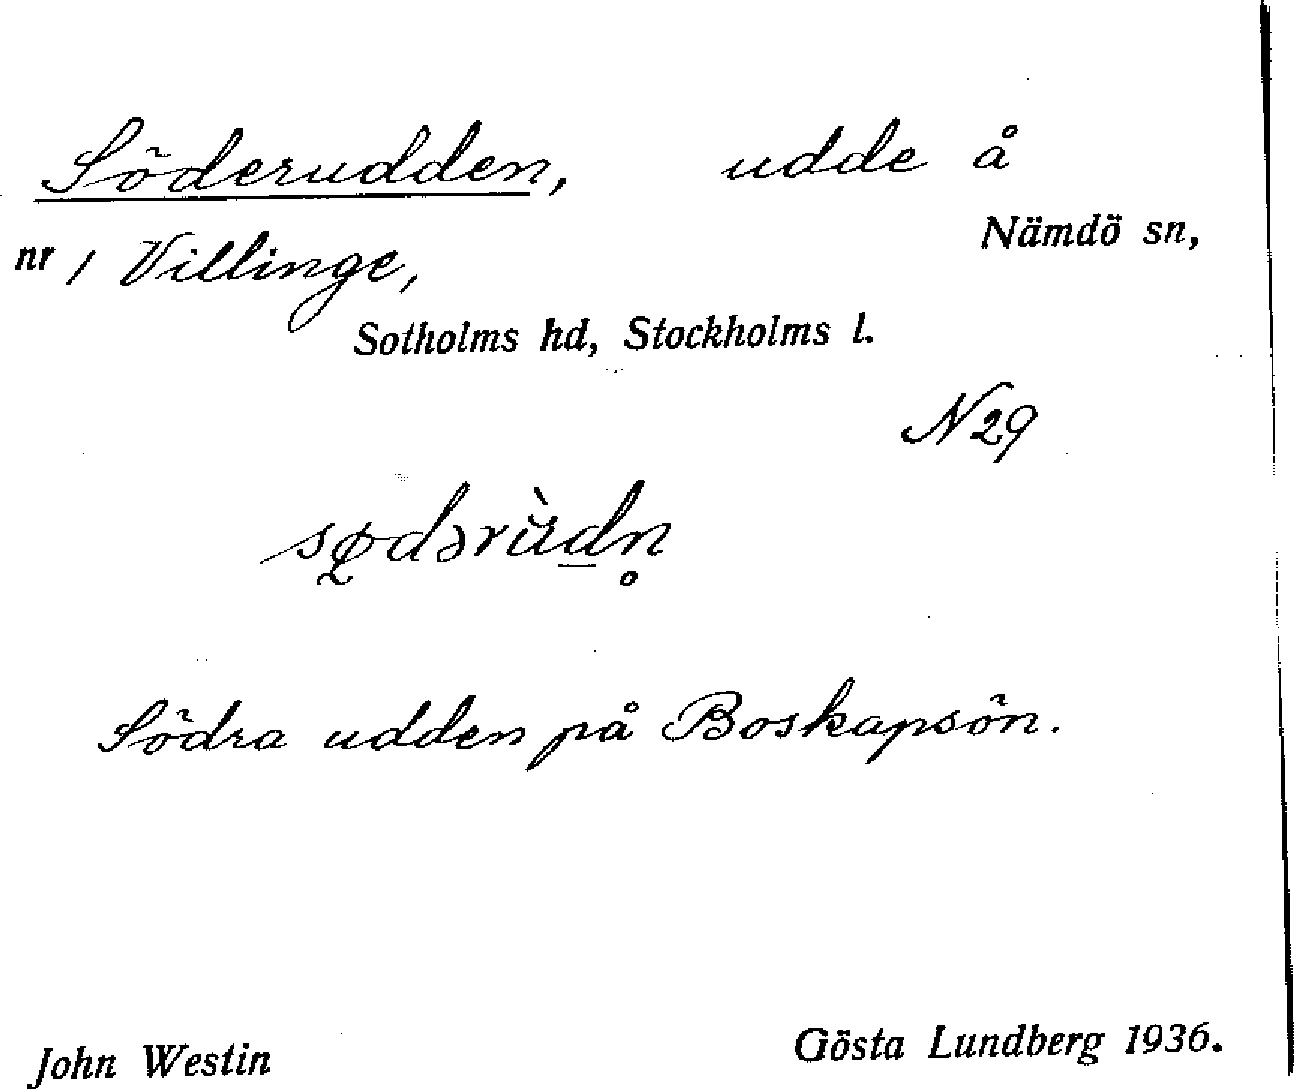 Söderudden, udde å
Nämdö sn,
nr 1 Villinge,
Sotholms hd, Stockholms l.
N 29
sødərùdn̥
Södra udden på Boskapsön.
John Westin Gösta Lundberg 1936.